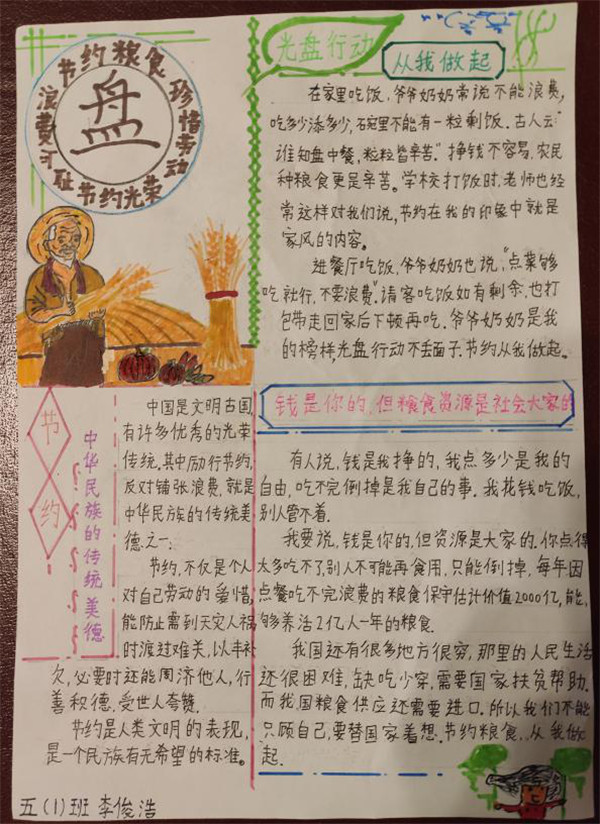 节约粮食
珍惜劳动
节约光荣
浪费可耻
盘
光盘行动
从我做起
在家里吃饭，爷爷奶奶常说不能浪费，
吃多少添多少，碗里不能有一粒剩饭。古人云“
谁知盘中餐，粒粒皆辛苦。”挣钱不容易，农民
种粮食更是辛苦。学校打饭时，老师也经
常这样对我们说，节约在我的印象中就是
家风的内容。
进餐厅吃饭，爷爷奶奶也说，“点菜够
吃就行，不要浪费”，请客吃饭如有剩余，也打
包带走回家后下顿再吃。爷爷奶奶是我
的榜样，光盘行动不丢面子，节约从我做起。
节约
中华民族的传统美德
中国是文明古国，
有许多优秀的光荣
传统，其中励行节约，
反对铺张浪费，就是
中华民族的传统美
德之一。
节约，不仅是个人
对自己劳动的爱惜，
能防止需到天灾人祸
时渡过难关，以丰补
欠，必要时还能周济他人，行
善积德，受世人夸赞。
节约是人类文明的表现，
是一个民族有无希望的标准。
钱是你的，但粮食资源是社会大家的
有人说，钱是我挣的，我点多少是我的
自由，吃不完倒掉是我自己的事。我花钱吃饭，
别人管不着。
我要说，钱是你的，但资源是大家的。你点得
太多吃不了，别人不可能再食用，只能倒掉，每年因
点餐吃不完浪费的粮食保守估计价值2000亿，能
够养活2亿人一年的粮食。
我国还有很多地方很穷，那里的人民生活
还很困难，缺吃少穿，需要国家扶贫帮助。
而我国粮食供应还需要进口。所以我们不能
只顾自己，要替国家着想。节约粮食，从我做
起。
五（1）班 李俊浩